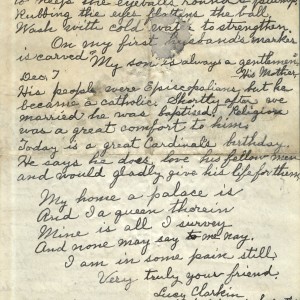 to keep the eyeballs round &
Rubbing the eyes flattens the ball
Wash with cold water to strengthen
On my first husband's marker
is carved "My son is always a gentleman,
Dec, 7 His Mother.
His people were Episcopalians but he
became a catholic. Shortly after we
married he was baptised, Religion
was a great comfort to him,
Today is a great Cardinals birthday.
He says he does love his fellow men
and would gladly give his life for them.
My home a palace is
And I a queen therein
Mine is all I survey
And none may say to me nay.
I am in some pain still
Very truly your friend,
Lucy Clarkin